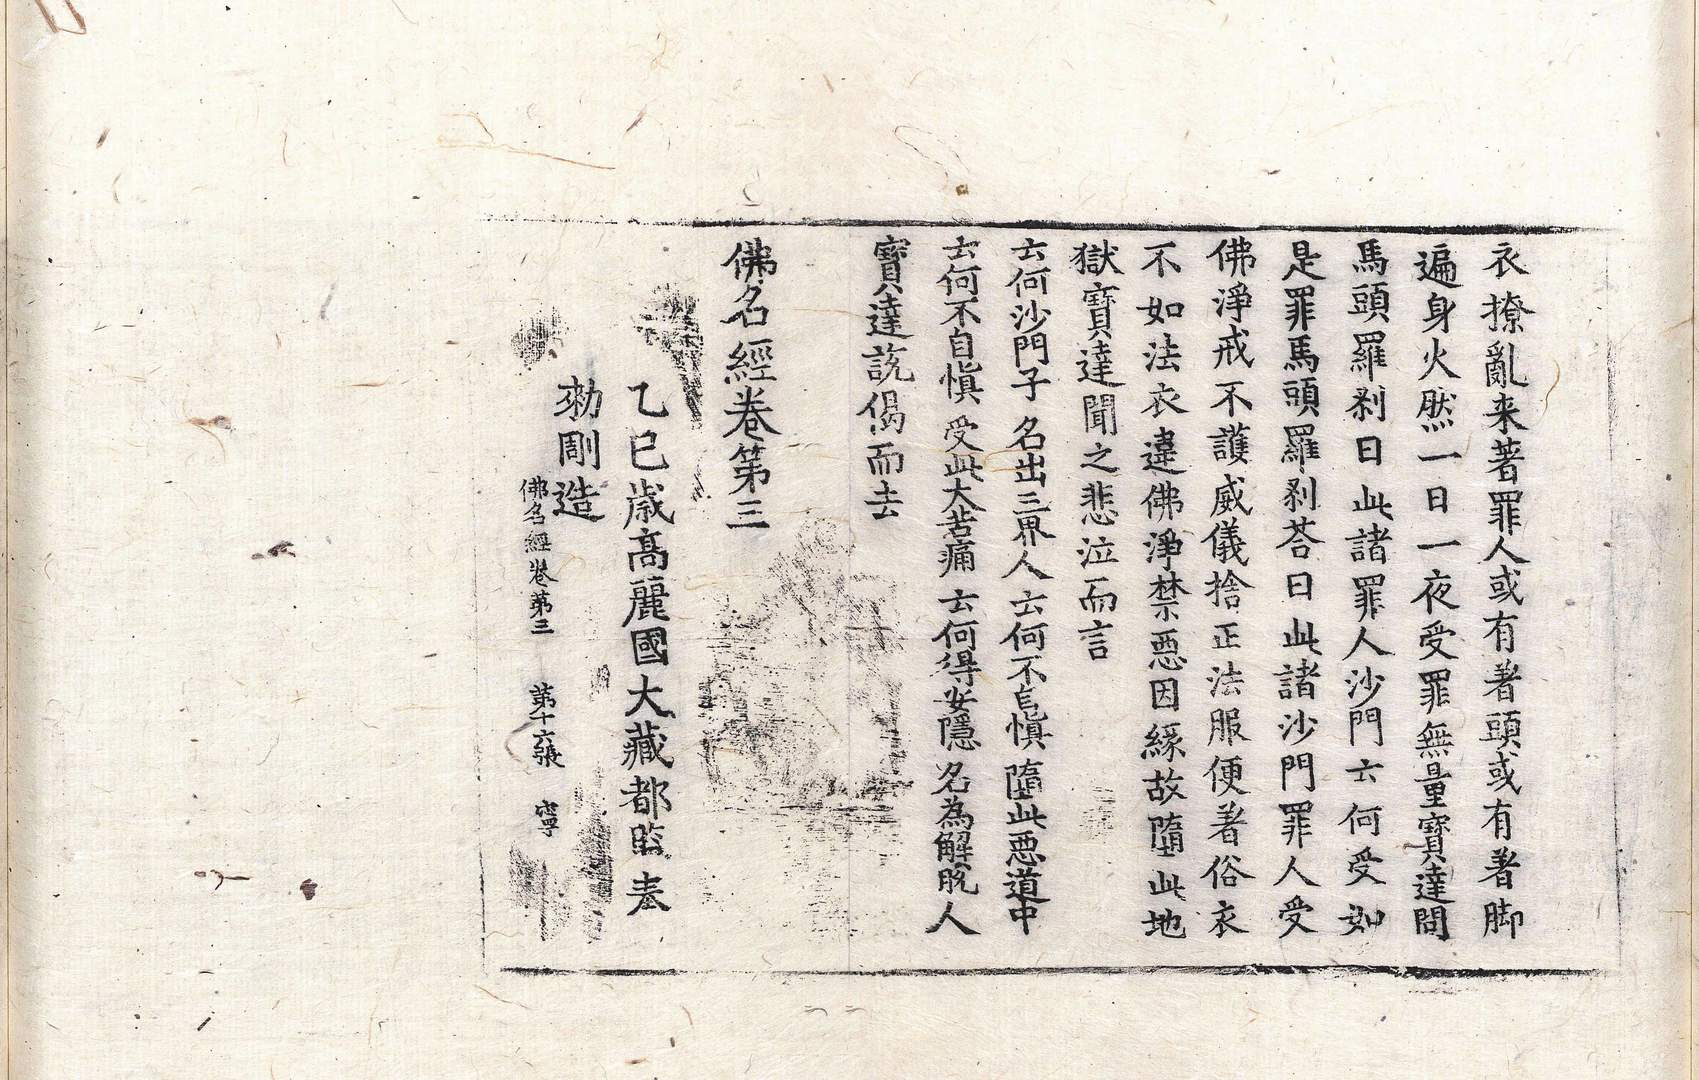 衣撩亂来著罪人或有著頭或有著脚
遍身火㷼一日一夜受罪無量寶達問
馬頭羅刹曰此諸罪人沙門云何受如
是罪馬頭羅刹荅曰此諸沙門罪人受
佛淨戒不護威儀捨正法服便著俗衣
不如法衣違佛淨禁惡因緣故墮此地
獄寶達聞之悲泣而言
云何沙門子 名出三界人 云何不自愼 墮此惡道中
云何不自愼 受此大苦痛 云何得安隱 名為解脫人
寶達說偈而去
佛名經卷第三
乙巳歲高麗國大藏都監奉
勑彫造
佛名經卷第三 第十六張 寧